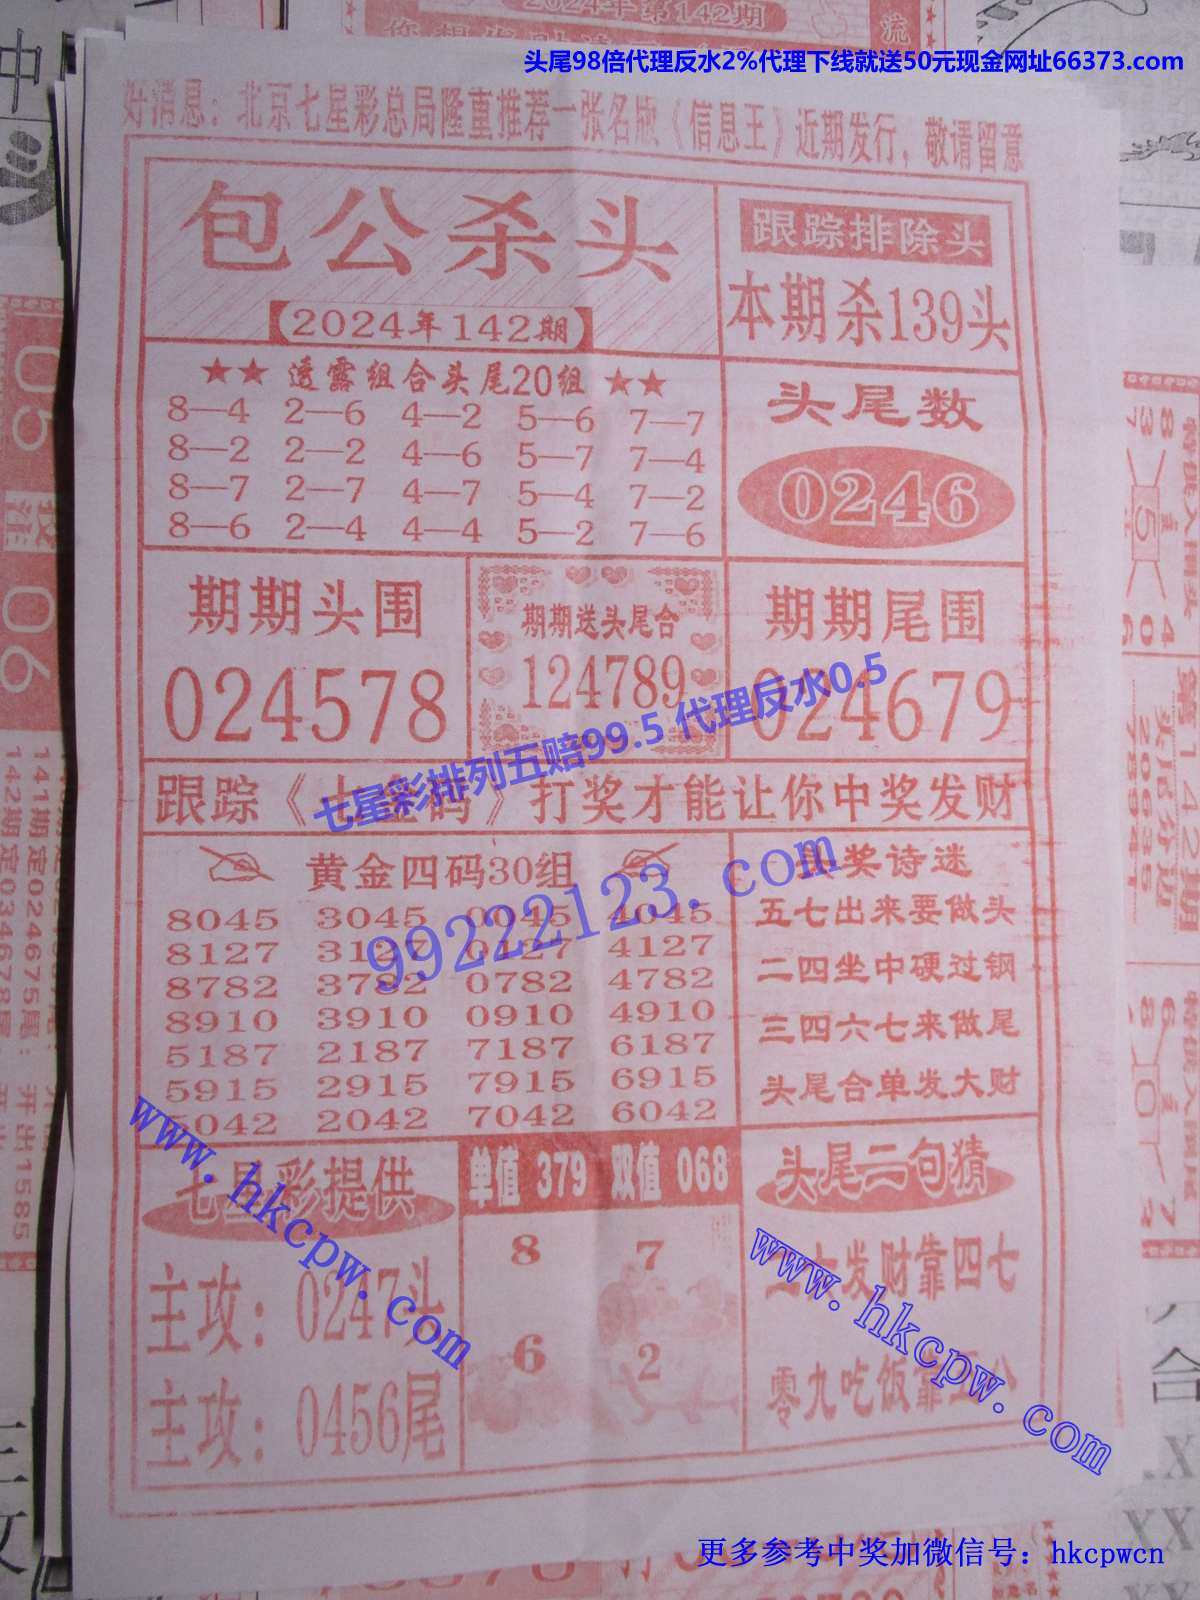 2024年第142期
头尾98倍代理反水2%代理下线就送50元现金网址66373.com
好消息：北京七星彩总局隆重推荐一张名版《信息王》近期发行，敬请留意
包公杀头
【2024年142期】
跟踪排除头
本期杀139头
★★ 透露组合头尾20组 ★★
8—4 2—6 4—2 5—6 7—7
8—2 2—2 4—6 5—7 7—4
8—7 2—7 4—7 5—4 7—2
8—6 2—4 4—4 5—2 7—6
头尾数
0246
期期头围
024578
期期送头尾合
124789
期期尾围
024679
七星彩排列五赔99.5 代理反水0.5
跟踪《 码》打奖才能让你中奖发财
黄金四码30组
8045 3045 0045 4045
8127 3127 0127 4127
8782 3782 0782 4782
8910 3910 0910 4910
5187 2187 7187 6187
5915 2915 7915 6915
5042 2042 7042 6042
99222123.com
头奖诗迷
五七出来要做头
二四坐中硬过钢
三四六七来做尾
头尾合单发大财
七星彩提供
主攻：0247头
主攻：0456尾
www.hkcpw.com
单值 379 双值 068
8 7
6 2
头尾二句猜
发财靠四七
零九吃饭靠
www.hkcpw.com
更多参考中奖加微信号：hkcpwcn
05
06
投注
141期定024675尾：开出1585
142期定034678尾：
第142期